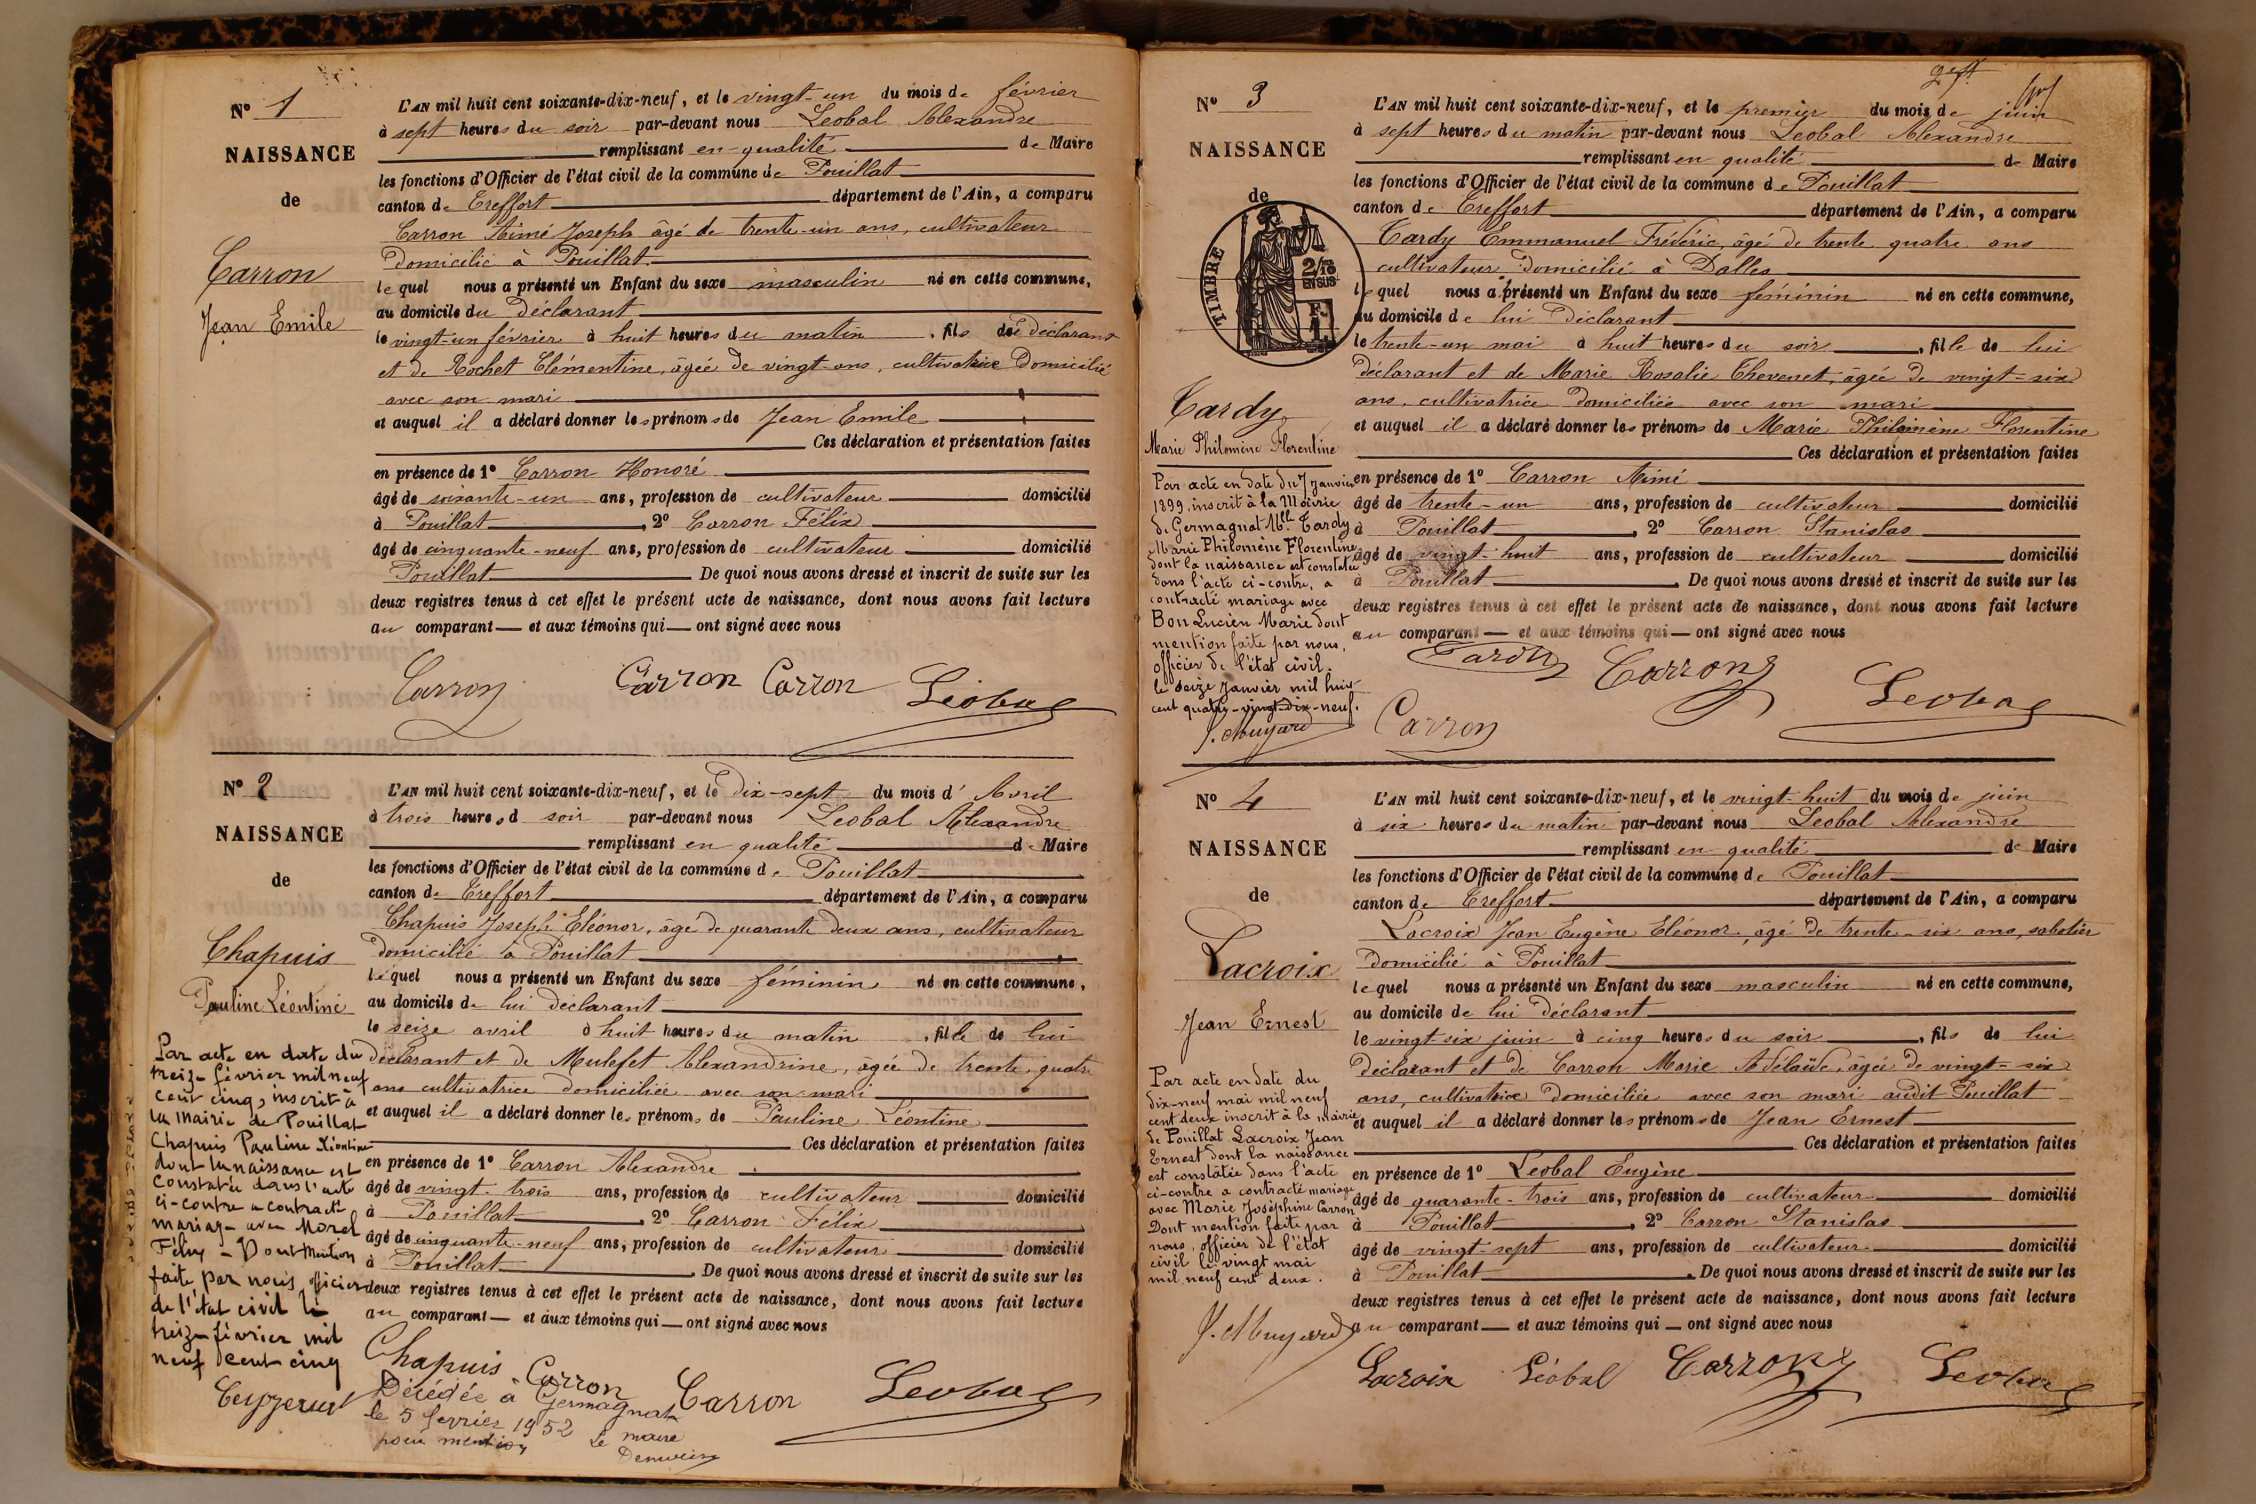 N° 1
NAISSANCE
de
Carron
Jean Emile
L'AN mil huit cent soixante-dix-neuf, et le vingt-un du mois de février
à sept heures du soir par-devant nous Leobal Alexandre
remplissant en qualité de Maire
les fonctions d'Officier de l'état civil de la commune de Pouillat
canton de Treffort département de l'Ain, a comparu
Carron Aimé Joseph âgé de trente-un ans, cultivateur
domicilié à Pouillat
lequel nous a présenté un Enfant du sexe masculin né en cette commune,
au domicile du déclarant
le vingt-un février à huit heures du matin, fils de déclarant
et de Rochet Clémentine, âgée de vingt-ans, cultivatrice domicilié
avec son mari
et auquel il a déclaré donner les prénoms de Jean Emile
Ces déclaration et présentation faites
en présence de 1° Carron Honoré
âgé de soixante-un ans, profession de cultivateur domicilié
à Pouillat, 2° Carron Félix
âgé de cinquante-neuf ans, profession de cultivateur domicilié
Pouillat De quoi nous avons dressé et inscrit de suite sur les
deux registres tenus à cet effet le présent acte de naissance, dont nous avons fait lecture
au comparant — et aux témoins qui — ont signé avec nous
Carron Carron Carron Léobal
N° 2
NAISSANCE
de
Chapuis
Pauline Léontine
Par acte en date du
treize février mil neuf
cent cinq, inscrit à
la Mairie de Pouillat
Chapuis Pauline Léontine
dont la naissance est
constatée dans l'acte
ci-contre a contracté
mariage avec Morel
Fély — Dont Mention
faite par nous, officier
de l'état civil le
treize février mil
neuf cent cinq
L'AN mil huit cent soixante-dix-neuf, et le dix-sept du mois d'Avril
à trois heures d soir par-devant nous Leobal Alexandre
remplissant en qualité de Maire
les fonctions d'Officier de l'état civil de la commune de Pouillat
canton de Treffort département de l'Ain, a comparu
Chapuis Joseph Eléonor, âgé de quarante deux ans, cultivateur
domicilié à Pouillat
lequel nous a présenté un Enfant du sexe féminin né en cette commune,
au domicile de lui déclarant
le seize avril à huit heures du matin, fille de lui
déclarant et de Mulefet Alexandrine, âgée de trente quatre
ans cultivatrice domiciliée avec son mari
et auquel il a déclaré donner les prénoms de Pauline Léontine
Ces déclaration et présentation faites
en présence de 1° Carron Alexandre
âgé de vingt-trois ans, profession de cultivateur domicilié
à Pouillat, 2° Carron Félix
âgé de cinquante-neuf ans, profession de cultivateur domicilié
à Pouillat. De quoi nous avons dressé et inscrit de suite sur les
deux registres tenus à cet effet le présent acte de naissance, dont nous avons fait lecture
au comparant — et aux témoins qui — ont signé avec nous
Chapuis Carron Carron Leobal
Décédée à Germagnat
le 5 février 1952
pour mention Le maire
N° 3
NAISSANCE
de
TIMBRE
2/10
EN SUS
Tardy
Marie Philomène Florentine
Par acte en date du 7 janvier
1899, inscrit à la Mairie
de Germagnat Mlle Tardy
Marie Philomène Florentine
dont la naissance est constatée
dans l'acte ci-contre, a
contracté mariage avec
Bon Lucien Marie dont
mention faite par nous,
officier de l'état civil.
le seize Janvier mil huit
cent quatre-vingt-dix-neuf.
J. Muyard
L'AN mil huit cent soixante-dix-neuf, et le premier du mois de juin
à sept heures du matin par-devant nous Leobal Alexandre
remplissant en qualité de Maire
les fonctions d'Officier de l'état civil de la commune de Pouillat
canton de Treffort département de l'Ain, a comparu
Tardy Emmanuel Frédéric, âgé de trente quatre ans
cultivateur domicilié à Dalles
lequel nous a présenté un Enfant du sexe féminin né en cette commune,
au domicile de lui déclarant
le trente-un mai à huit heures du soir, fille de lui
déclarant et de Marie Rosalie Thevenet, âgée de vingt-six
ans, cultivatrice domiciliée avec son mari
et auquel il a déclaré donner les prénoms de Marie Philomène Florentine
Ces déclaration et présentation faites
en présence de 1° Carron Aimé
âgé de trente-un ans, profession de cultivateur domicilié
à Pouillat, 2° Carron Stanislas
âgé de vingt-huit ans, profession de cultivateur domicilié
à Pouillat. De quoi nous avons dressé et inscrit de suite sur les
deux registres tenus à cet effet le présent acte de naissance, dont nous avons fait lecture
au comparant — et aux témoins qui — ont signé avec nous
Tardy Carron Leobal
Carron
N° 4
NAISSANCE
de
Lacroix
Jean Ernest
Par acte en date du
dix-neuf mai mil neuf
cent deux inscrit à la mairie
de Pouillat Lacroix Jean
Ernest dont la naissance
est constatée dans l'acte
ci-contre a contracté mariage
avec Marie Joséphine Carron
Dont mention faite par
nous, officier de l'état
civil le vingt mai
mil neuf cent deux.
J. Muyard
L'AN mil huit cent soixante-dix-neuf, et le vingt-huit du mois de juin
à six heures du matin par-devant nous Leobal Alexandre
remplissant en qualité de Maire
les fonctions d'Officier de l'état civil de la commune de Pouillat
canton de Treffort département de l'Ain, a comparu
Lacroix Jean Eugène Eléonor, âgé de trente-six ans, sabotier
domicilié à Pouillat
lequel nous a présenté un Enfant du sexe masculin né en cette commune,
au domicile de lui déclarant
le vingt-six juin à cinq heures du soir, fils de lui
déclarant et de Carron Marie Adélaïde, âgée de vingt-six
ans, cultivatrice domiciliée avec son mari audit Pouillat
et auquel il a déclaré donner les prénoms de Jean Ernest
Ces déclaration et présentation faites
en présence de 1° Leobal Eugène
âgé de quarante-trois ans, profession de cultivateur domicilié
à Pouillat, 2° Carron Stanislas
âgé de vingt-sept ans, profession de cultivateur domicilié
à Pouillat. De quoi nous avons dressé et inscrit de suite sur les
deux registres tenus à cet effet le présent acte de naissance, dont nous avons fait lecture
au comparant — et aux témoins qui — ont signé avec nous
Lacroix Léobal Carron Leobal